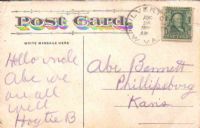 Post Card
WRITE MESSAGE HERE
Hello uncle
Abe we
are all
well
B
Abe Bennett
Phillipsburg
Kans